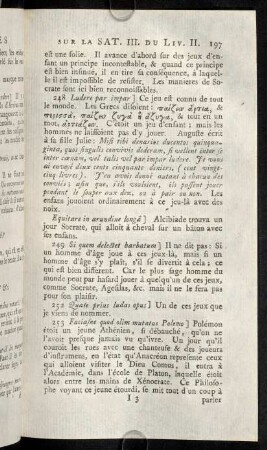 SUR LA SAT. III. DU LIV. II. 197
est une folie. Il avance d'abord sur des jeux d'en-
fant un principe incontestable, & quand ce principe
est bien insinué, il en tire sa conséquence, à laquel-
le il est impossible de résister. Les manieres de So-
crate sont ici bien reconnoissables.
248 Ludere par impar] Ce jeu est connu de tout
le monde. Les Grecs disoient : παίζειν ἄρτια,
περισσὰ, παίζειν ζυγὰ ἢ ἄζυγα, & tout en un
mot, ἀρτιάζειν. C'étoit un jeu d'enfant ; mais les
hommes ne laissoient pas d'y jouer. Auguste écrit
à sa fille Julie : Misi tibi denarios ducentos quinqua-
ginta, quos singulis convivis dederam, si vellent inter se
inter cœnam, vel talis vel par impar ludere. Je vous
ai envoyé deux cents cinquante deniers, (cent vingt-
cinq livres). J'en avois donné autant à chacun des
conviés ; afin que, s'ils vouloient, ils pussent jouer
pendant le souper aux dez, ou à pair ou non. Les
enfans jouoient ordinairement à ce jeu-là avec des
noix.
Equitare in arundine longâ] Alcibiade trouva un
jour Socrate, qui alloit à cheval sur un bâton avec
les enfans.
249 Si quem delectet barbatum] Il ne dit pas: Si
un homme d'âge joue à ces jeux-là, mais si un
homme d'âge s'y plaît, s'il se divertit à cela ; ce
qui est bien différent. Car le plus sage homme du
monde peut par hasard jouer à quelqu'un de ces jeux,
comme Socrate, Agésilas, &c. mais il ne le fera pas
pour son plaisir.
252 Quale prius ludas opus] Un de ces jeux que
je viens de nommer.
253 Faciasne quod olim mutatus Polemo] Polémon
étoit un jeune Athénien, si débauché, qu'on ne
l'avoit presque jamais vu qu'ivre. Un jour qu'il
couroit les rues avec une chanteuse & des joueurs
d'instrumens, en l'état qu'Anacréon représente ceux
qui alloient visiter le Dieu Comus, il entra à
l'Académie, dans l'école de Platon, laquelle étoit
alors entre les mains de Xénocrate. Ce Philoso-
phe voyant ce jeune étourdi, se mit tout d'un coup à
I 3 parler